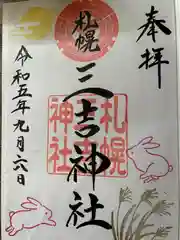 奉拝
札幌
三吉神社
札幌三吉神社
令和五年九月六日